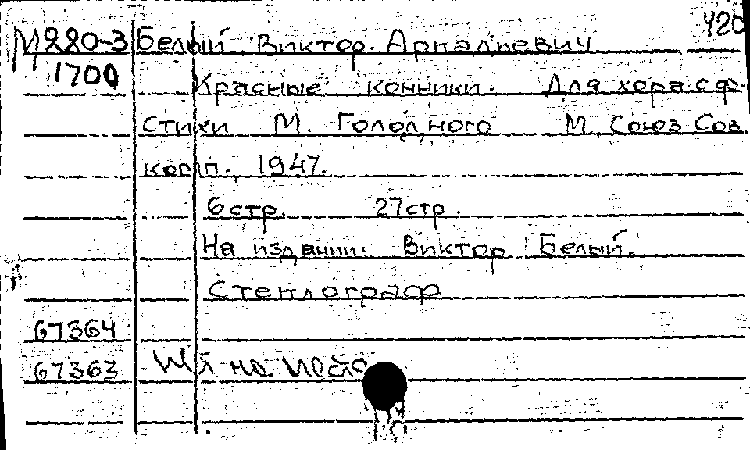 М220-3 Белый Виктор Аркадьевич 420
1700 Красные конники. Для хора с ф-
стихи М. Голодного М. Союз Сов.
комп., 1947.
6 стр. 27 стр.
На издании: Виктор Белый.
Стеклограф
67364
67363